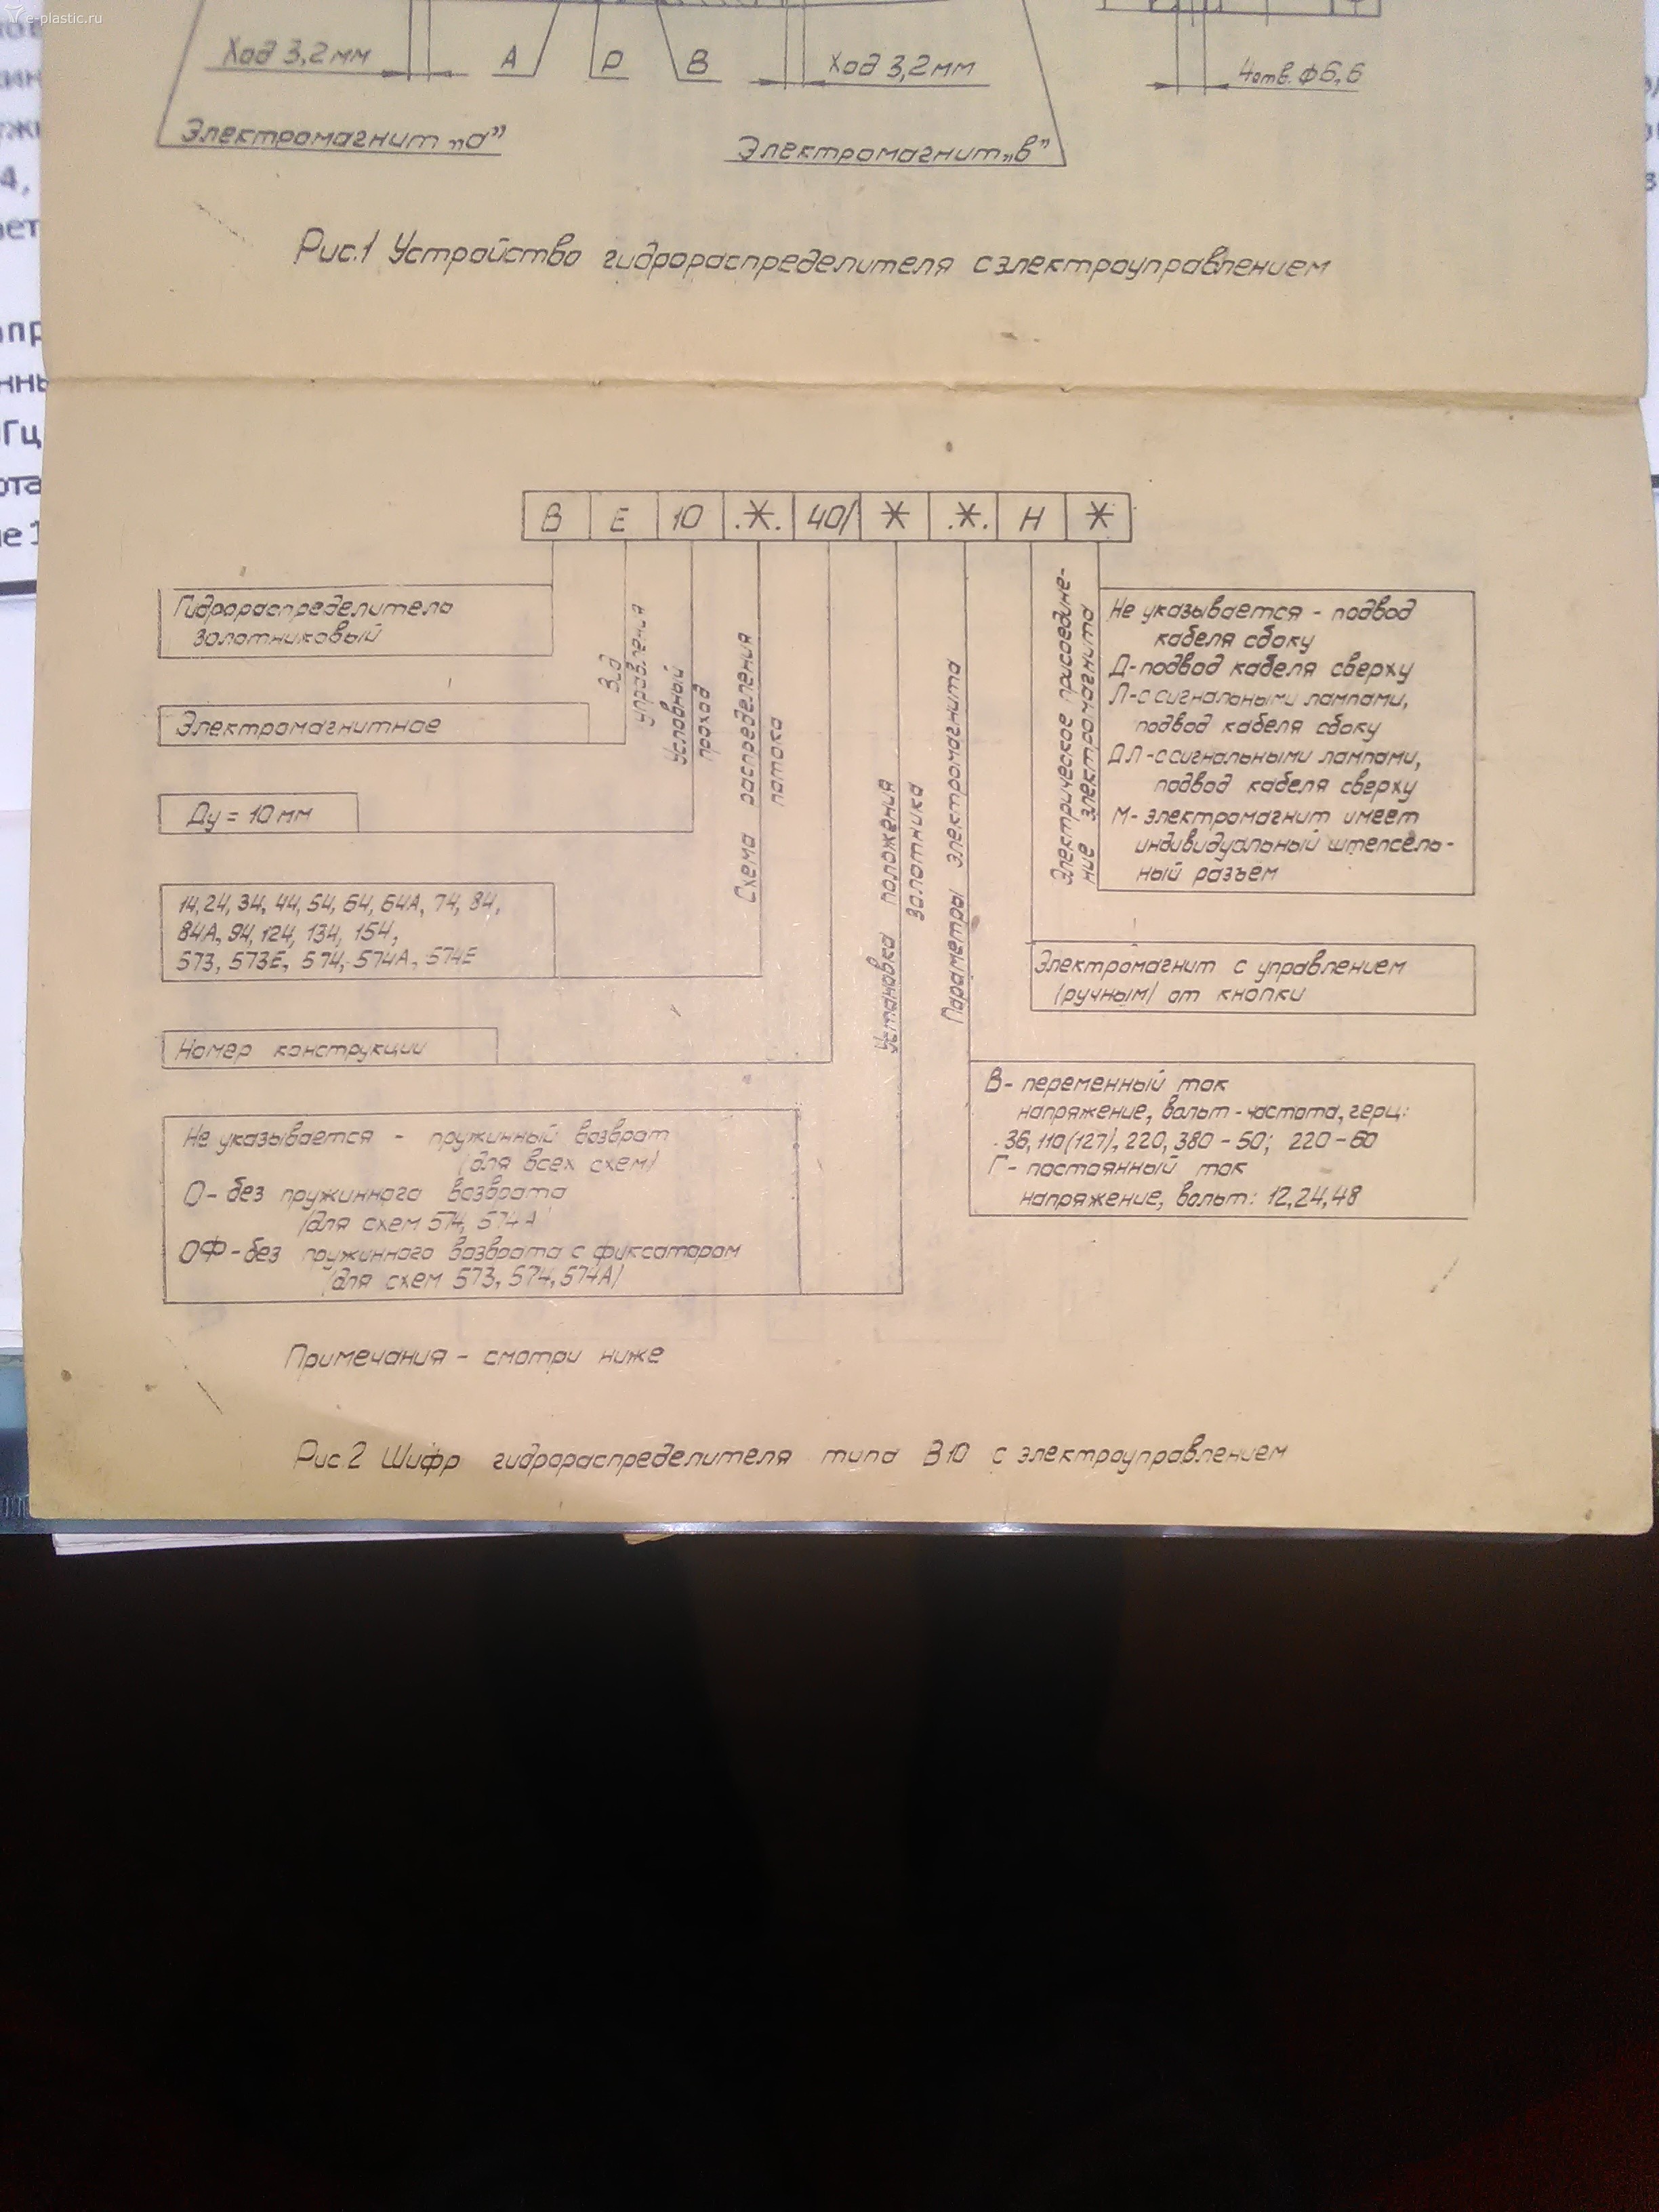 e-plastic.ru
Ход 3,2 мм
А
Р
В
Ход 3,2 мм
4 отв. ф6,6
Электромагнит „а”
Электромагнит „в”
Рис.1 Устройство гидрораспределителя с электроуправлением
В Е 10 .*. 40/ * .*. Н *
Гидрораспределитель
золотниковый
Вид
управления
Электромагнитное
Условный
проход
Ду = 10 мм
Схема распределения
потока
14, 24, 34, 44, 54, 64, 64А, 74, 84,
84А, 94, 124, 134, 154,
573, 573Е, 574, 574А, 574Е
Номер конструкции
Установка положения
золотника
Не указывается - пружинный возврат
(для всех схем)
О - без пружинного возврата
(для схем 574, 574А)
ОФ - без пружинного возврата с фиксатором
(для схем 573, 574, 574А)
Параметры электромагнита
В - переменный ток
напряжение, вольт - частота, герц:
36, 110(127), 220, 380 - 50; 220 - 60
Г - постоянный ток
напряжение, вольт: 12, 24, 48
Электромагнит с управлением
(ручным) от кнопки
Электрическое присоедине-
ние электромагнита
Не указывается - подвод
кабеля сбоку
Д - подвод кабеля сверху
Л - с сигнальными лампами,
подвод кабеля сбоку
ДЛ - с сигнальными лампами,
подвод кабеля сверху
М - электромагнит имеет
индивидуальный штепсель-
ный разъем
Примечания - смотри ниже
Рис.2 Шифр гидрораспределителя типа В10 с электроуправлением